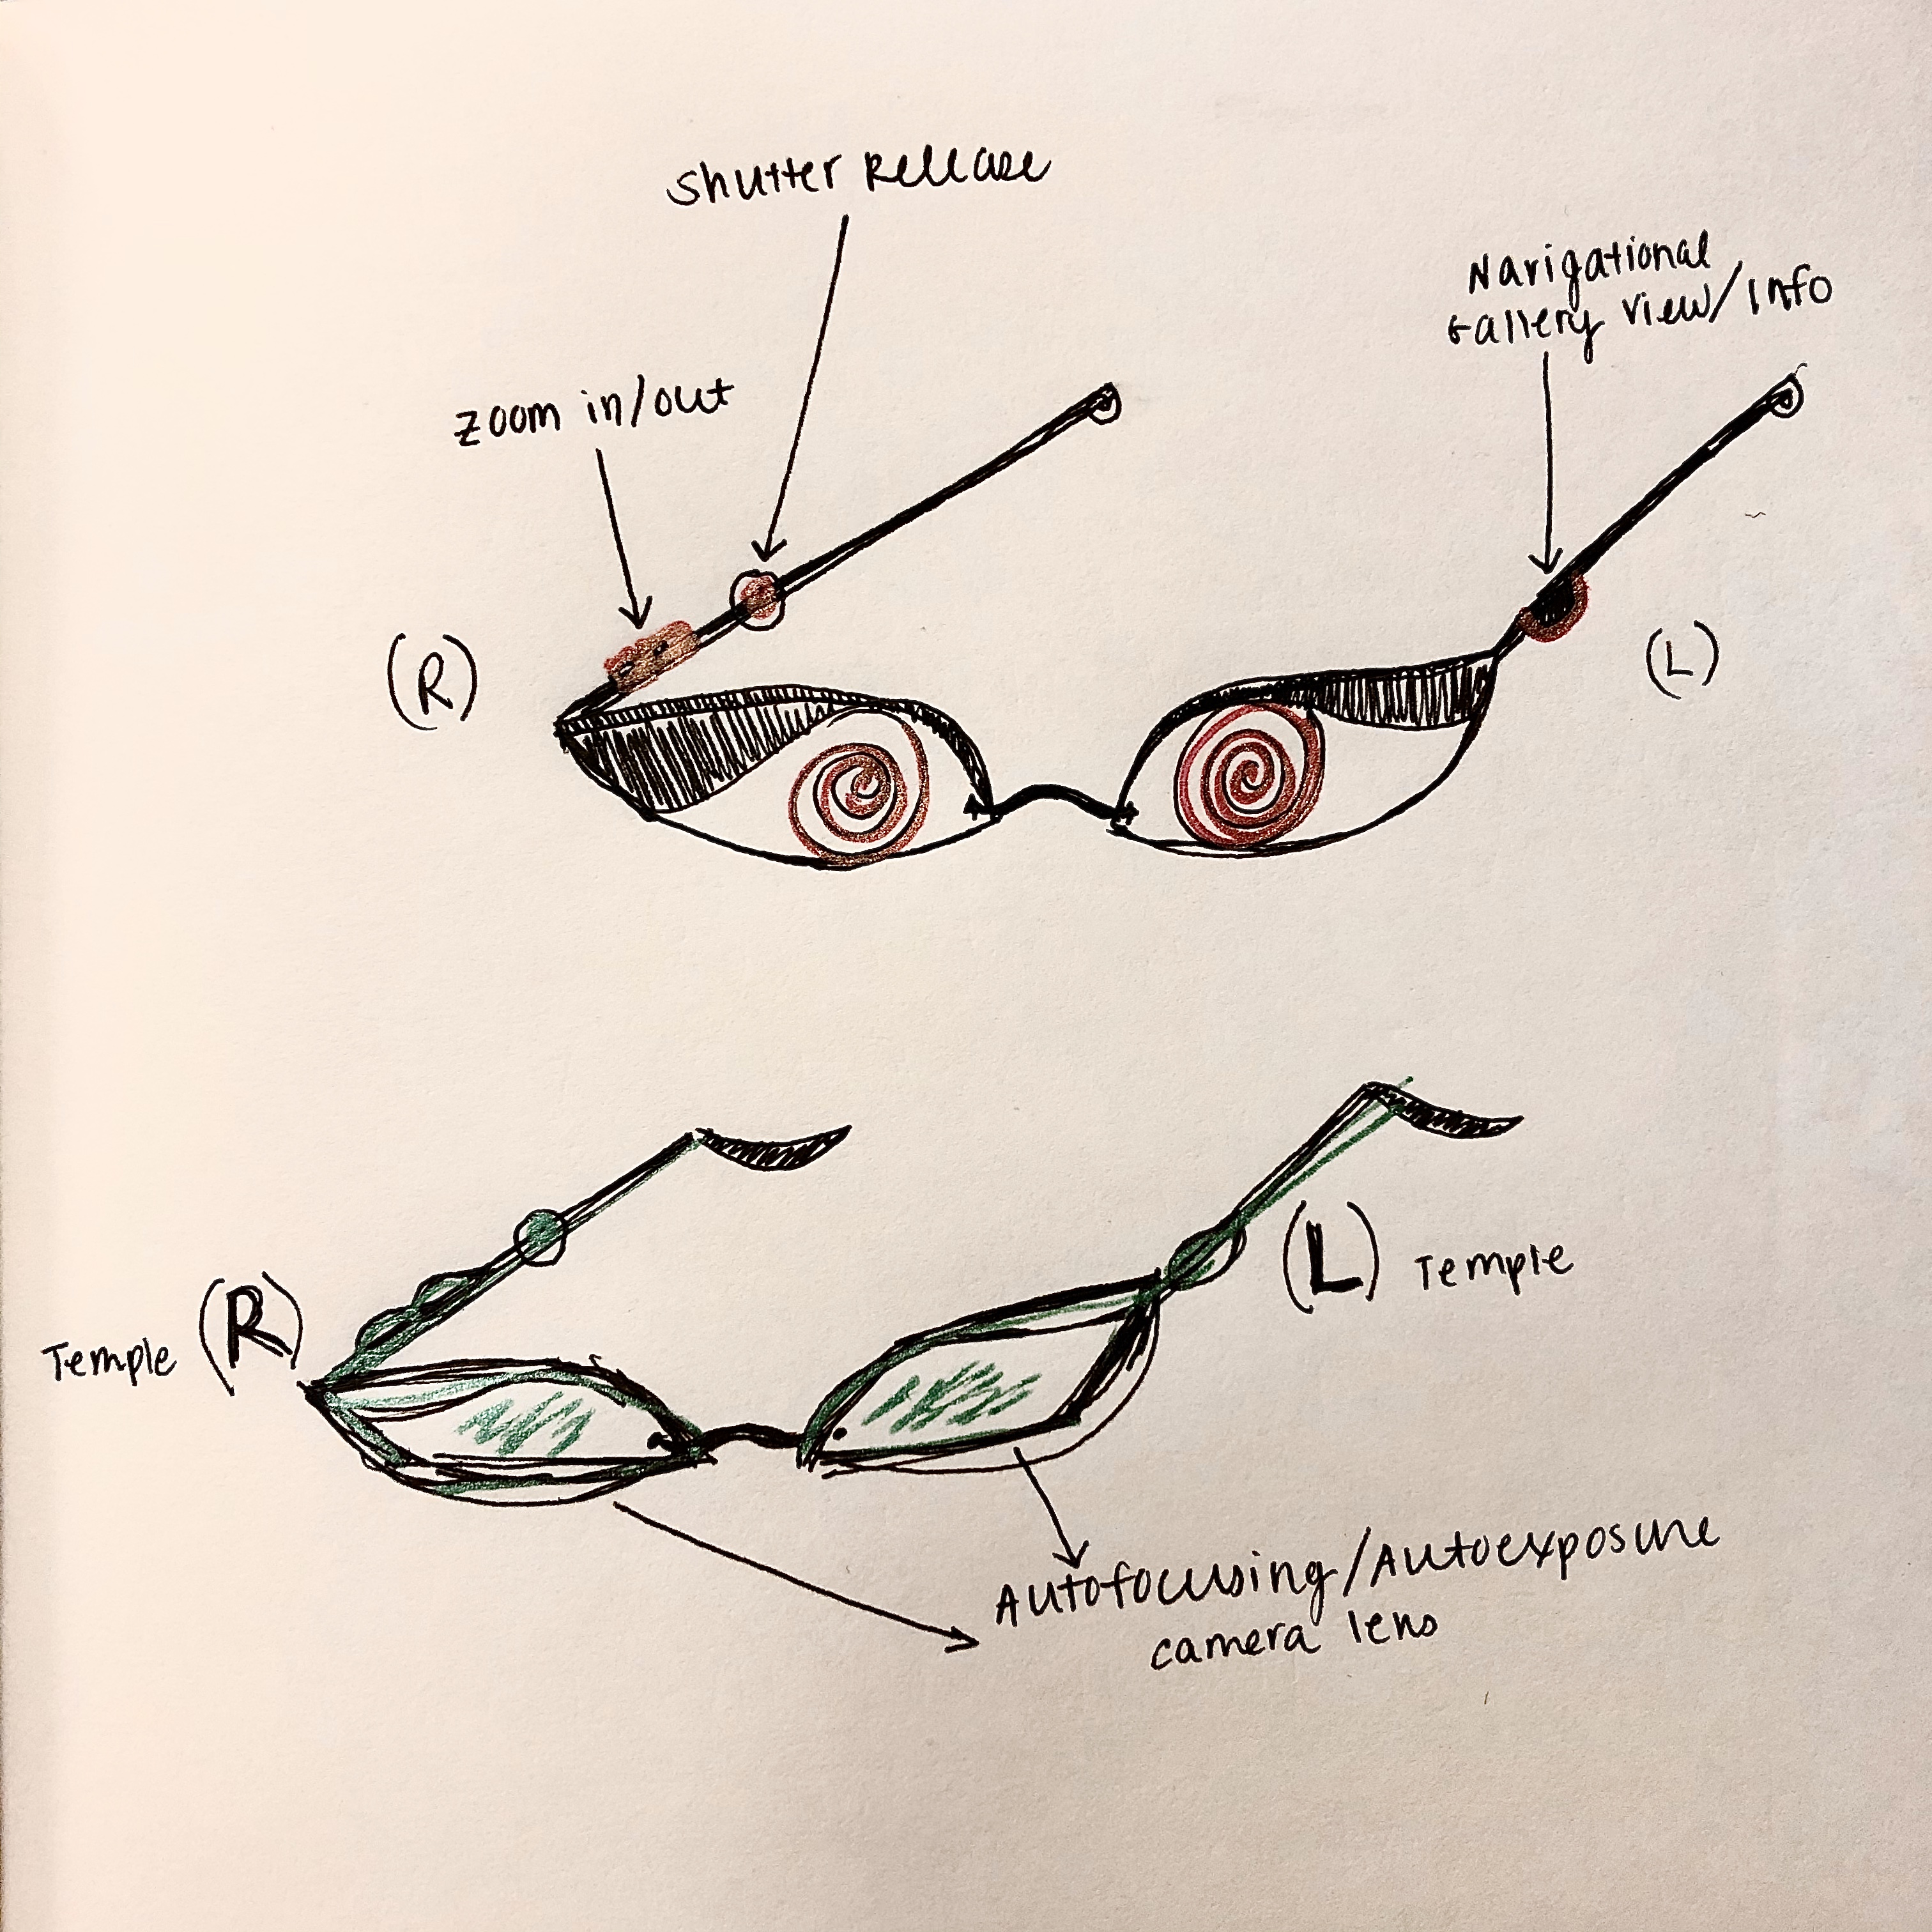 Shutter Release
Navigational
Gallery View/Info
Zoom in/out
(R)
(L)
(L) Temple
Temple (R)
Autofocusing/Autoexposure
camera lens